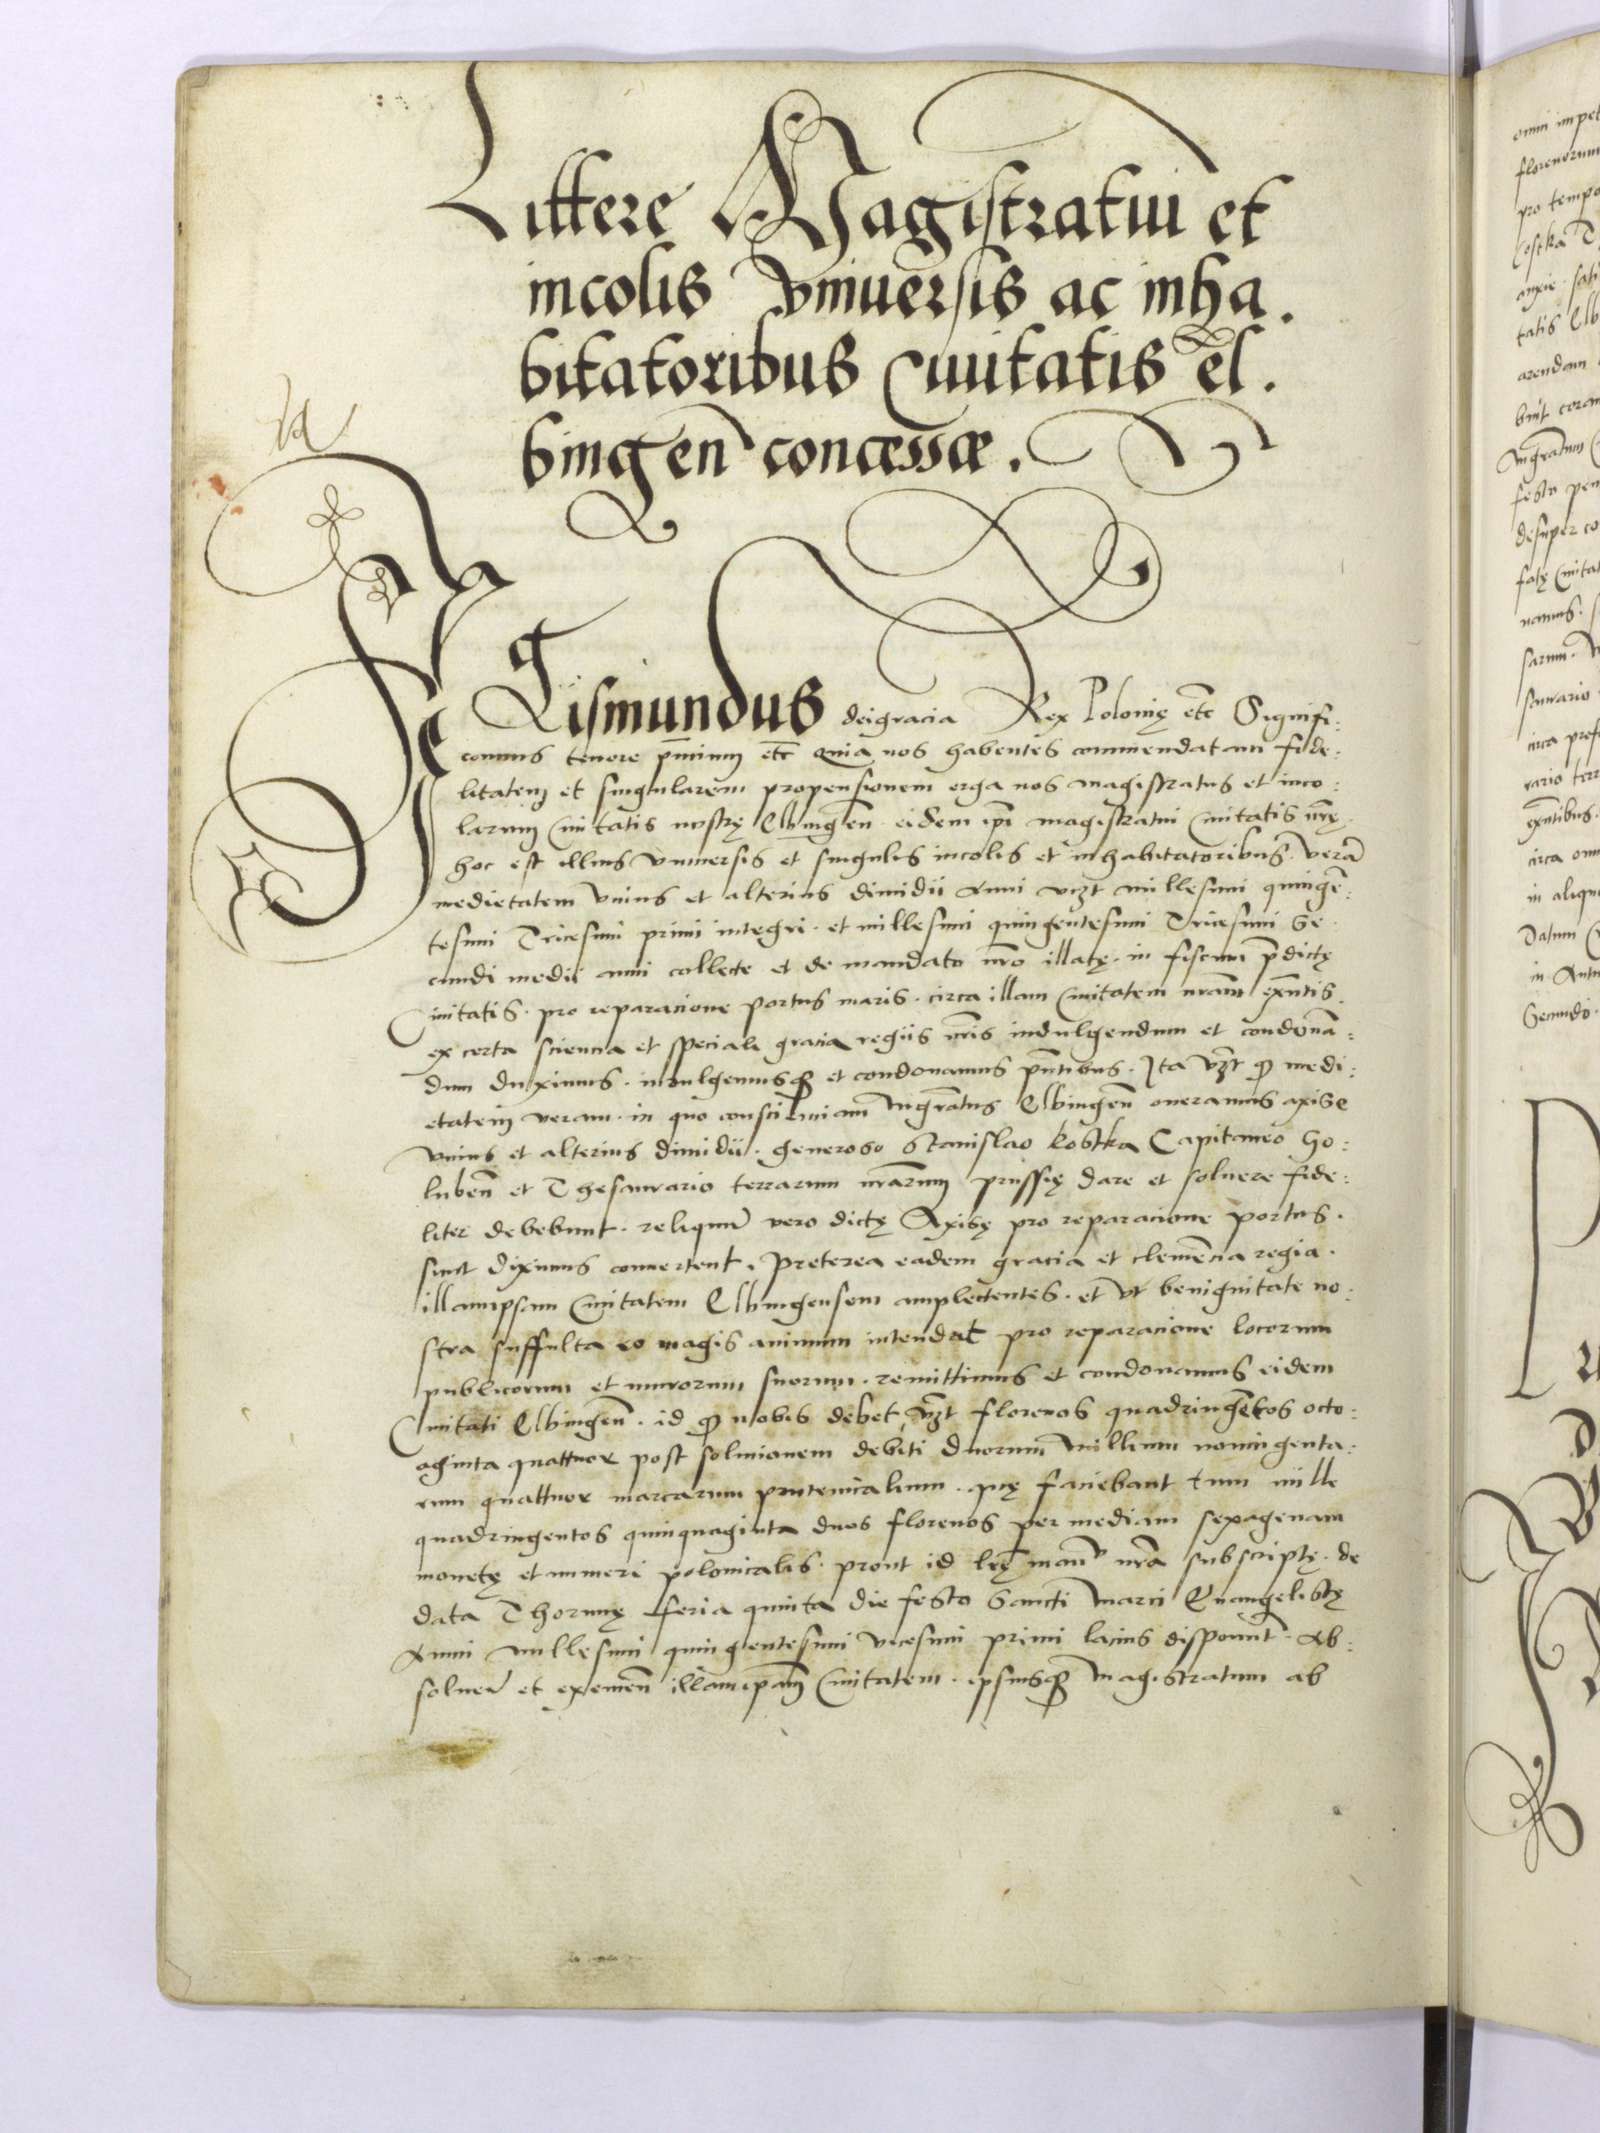 Littere Magistratui et
incolis vniuersis ac inha.
bitatoribus Ciuitatis el.
bingen̄ concessæ.
Sigismundus deigracia Rex Polonię etc̄ Signifi:
camus tenore pn̄tium etc̄ Quia nos habentes commendatam fide:
litatem et singularem propensionem erga nos magistratus et inco:
larum Ciuitatis nostrę Elbingen̄ eidem ip̄i magistratui Ciuitatis nr̄ę
hoc est illius vniuersis et singulis incolis et inhabitatoribus. verā
medietatem vnius et alterius dimidii Anni vizt millesimi quingē:
tesimi Tricesimi primi integri. et millesimi quingentesimi Tricesimi Se
cundi medii anni collecte et de mandato nr̄o illatę. in fiscum p̄dictę
Ciuitatis. pro reparacione portus maris. circa illam Ciuitatem nr̄am exn̄tis.
ex certa sciencia et speciali gracia regiis nr̄is indulgendum et condonā:
dum duximus. indulgemusqꝫ et condonamus pn̄tibus. Ita vꝫt ꝙ medi:
etatem veram. in quo conscienciam Mgrātus Elbingen̄ oneramus axise
vnius et alterius dimidii. generoso Stanislao Kostka Capitaneo Go:
luben̄ et Thesaurario terrarum nr̄arum prussię dare et soluere fide:
liter debebunt. reliquum vero dictę Axisę pro reparacione portus.
sicut diximus conuertent. Preterea eadem gracia et clemēcia regia.
illamipsam Ciuitatem Elbingensem amplectentes. et vt benignitate no:
stra suffulta eo magis animum intendat pro reparacione locorum
publicorum et murorum suorum. remittimus et condonamus eidem
Ciuitati Elbingen̄. id ꝙ nobis debet, vꝫt florenos quadringētos octo:
aginta quattuor post solucionem debiti duorum Millium nonningenta:
rum quattuor marcarum prutenicalium. quę faciebant tum mille
quadringentos quinquaginta duos florenos per mediam sexagenam
monetę et numeri polonicalis. prout id lr̄ę manu nr̄a subscriptę. de
data Thorunę feria quinta die festo Sancti Marci Euangelistę
Anni millesimi quingentesimi vicesimi primi lacius disponunt. Ab:
soluen̄ et eximen̄ illamip̄am Ciuitatem. ipsiusqꝫ Magistratum ab